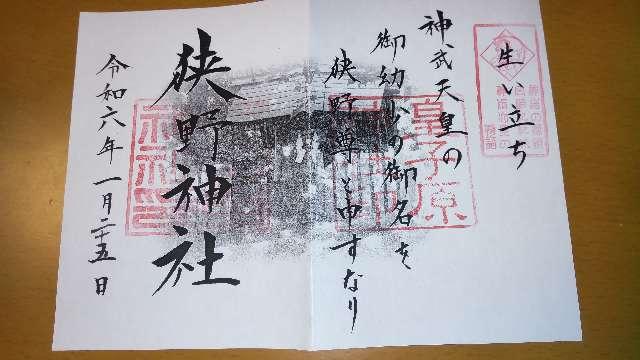 生い立ち
神武天皇の
御幼少の御名を
狭野尊と申すなり
皇子原
狭野神社
令和六年一月二十五日